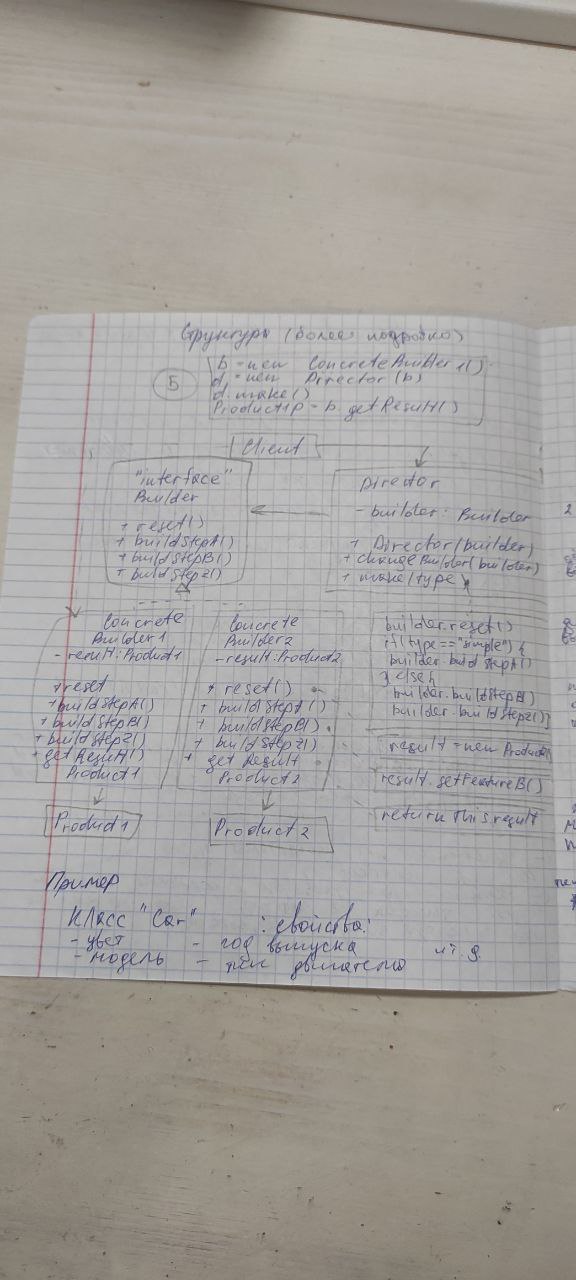 Структуры (более подробно)
5
b = new ConcreteBuilder1()
d = new Director(b)
d.make()
Product1 p = b.getResult()
Client
"interface"
Builder
+ reset()
+ buildStepA()
+ buildStepB()
+ buildStepZ()
Director
- builder: Builder
+ Director(builder)
+ changeBuilder(builder)
+ make(type)
Concrete
Builder1
- result: Product1
+ reset
+ buildStepA()
+ buildStepB()
+ buildStepZ()
+ getResult()
Product1
Concrete
Builder2
- result: Product2
+ reset()
+ buildStepA()
+ buildStepB()
+ buildStepZ()
+ getResult
Product2
builder.reset()
if (type == "simple") {
builder.buildStepA()
} else {
builder.buildStepB()
builder.buildStepZ()}
result = new Product2
result.setFeatureB()
return this.result
Product1
Product2
Пример
Класс "Car" : свойства:
- цвет - год выпуска
- модель - тип двигателя и т.д.